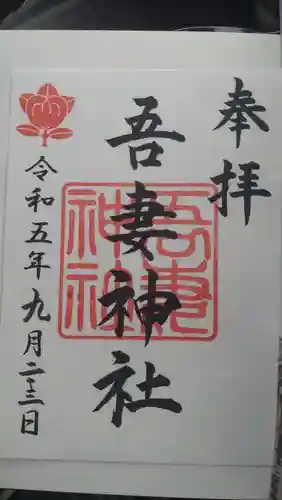 奉拝
吾妻神社
吾妻神社
令和五年九月二十三日